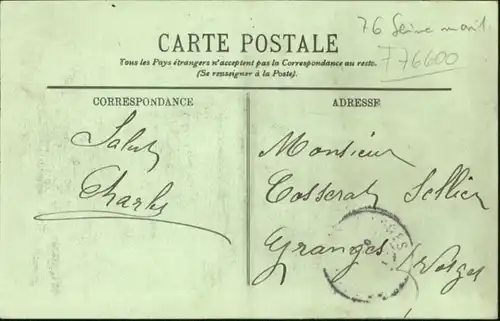 76 Seine marit.
F 76600
CARTE POSTALE
Tous les Pays étrangers n'acceptent pas la Correspondance au recto.
(Se renseigner à la Poste).
CORRESPONDANCE
ADRESSE
Salut
Charles
Monsieur
Cosserat Sellier
Granges Vosges